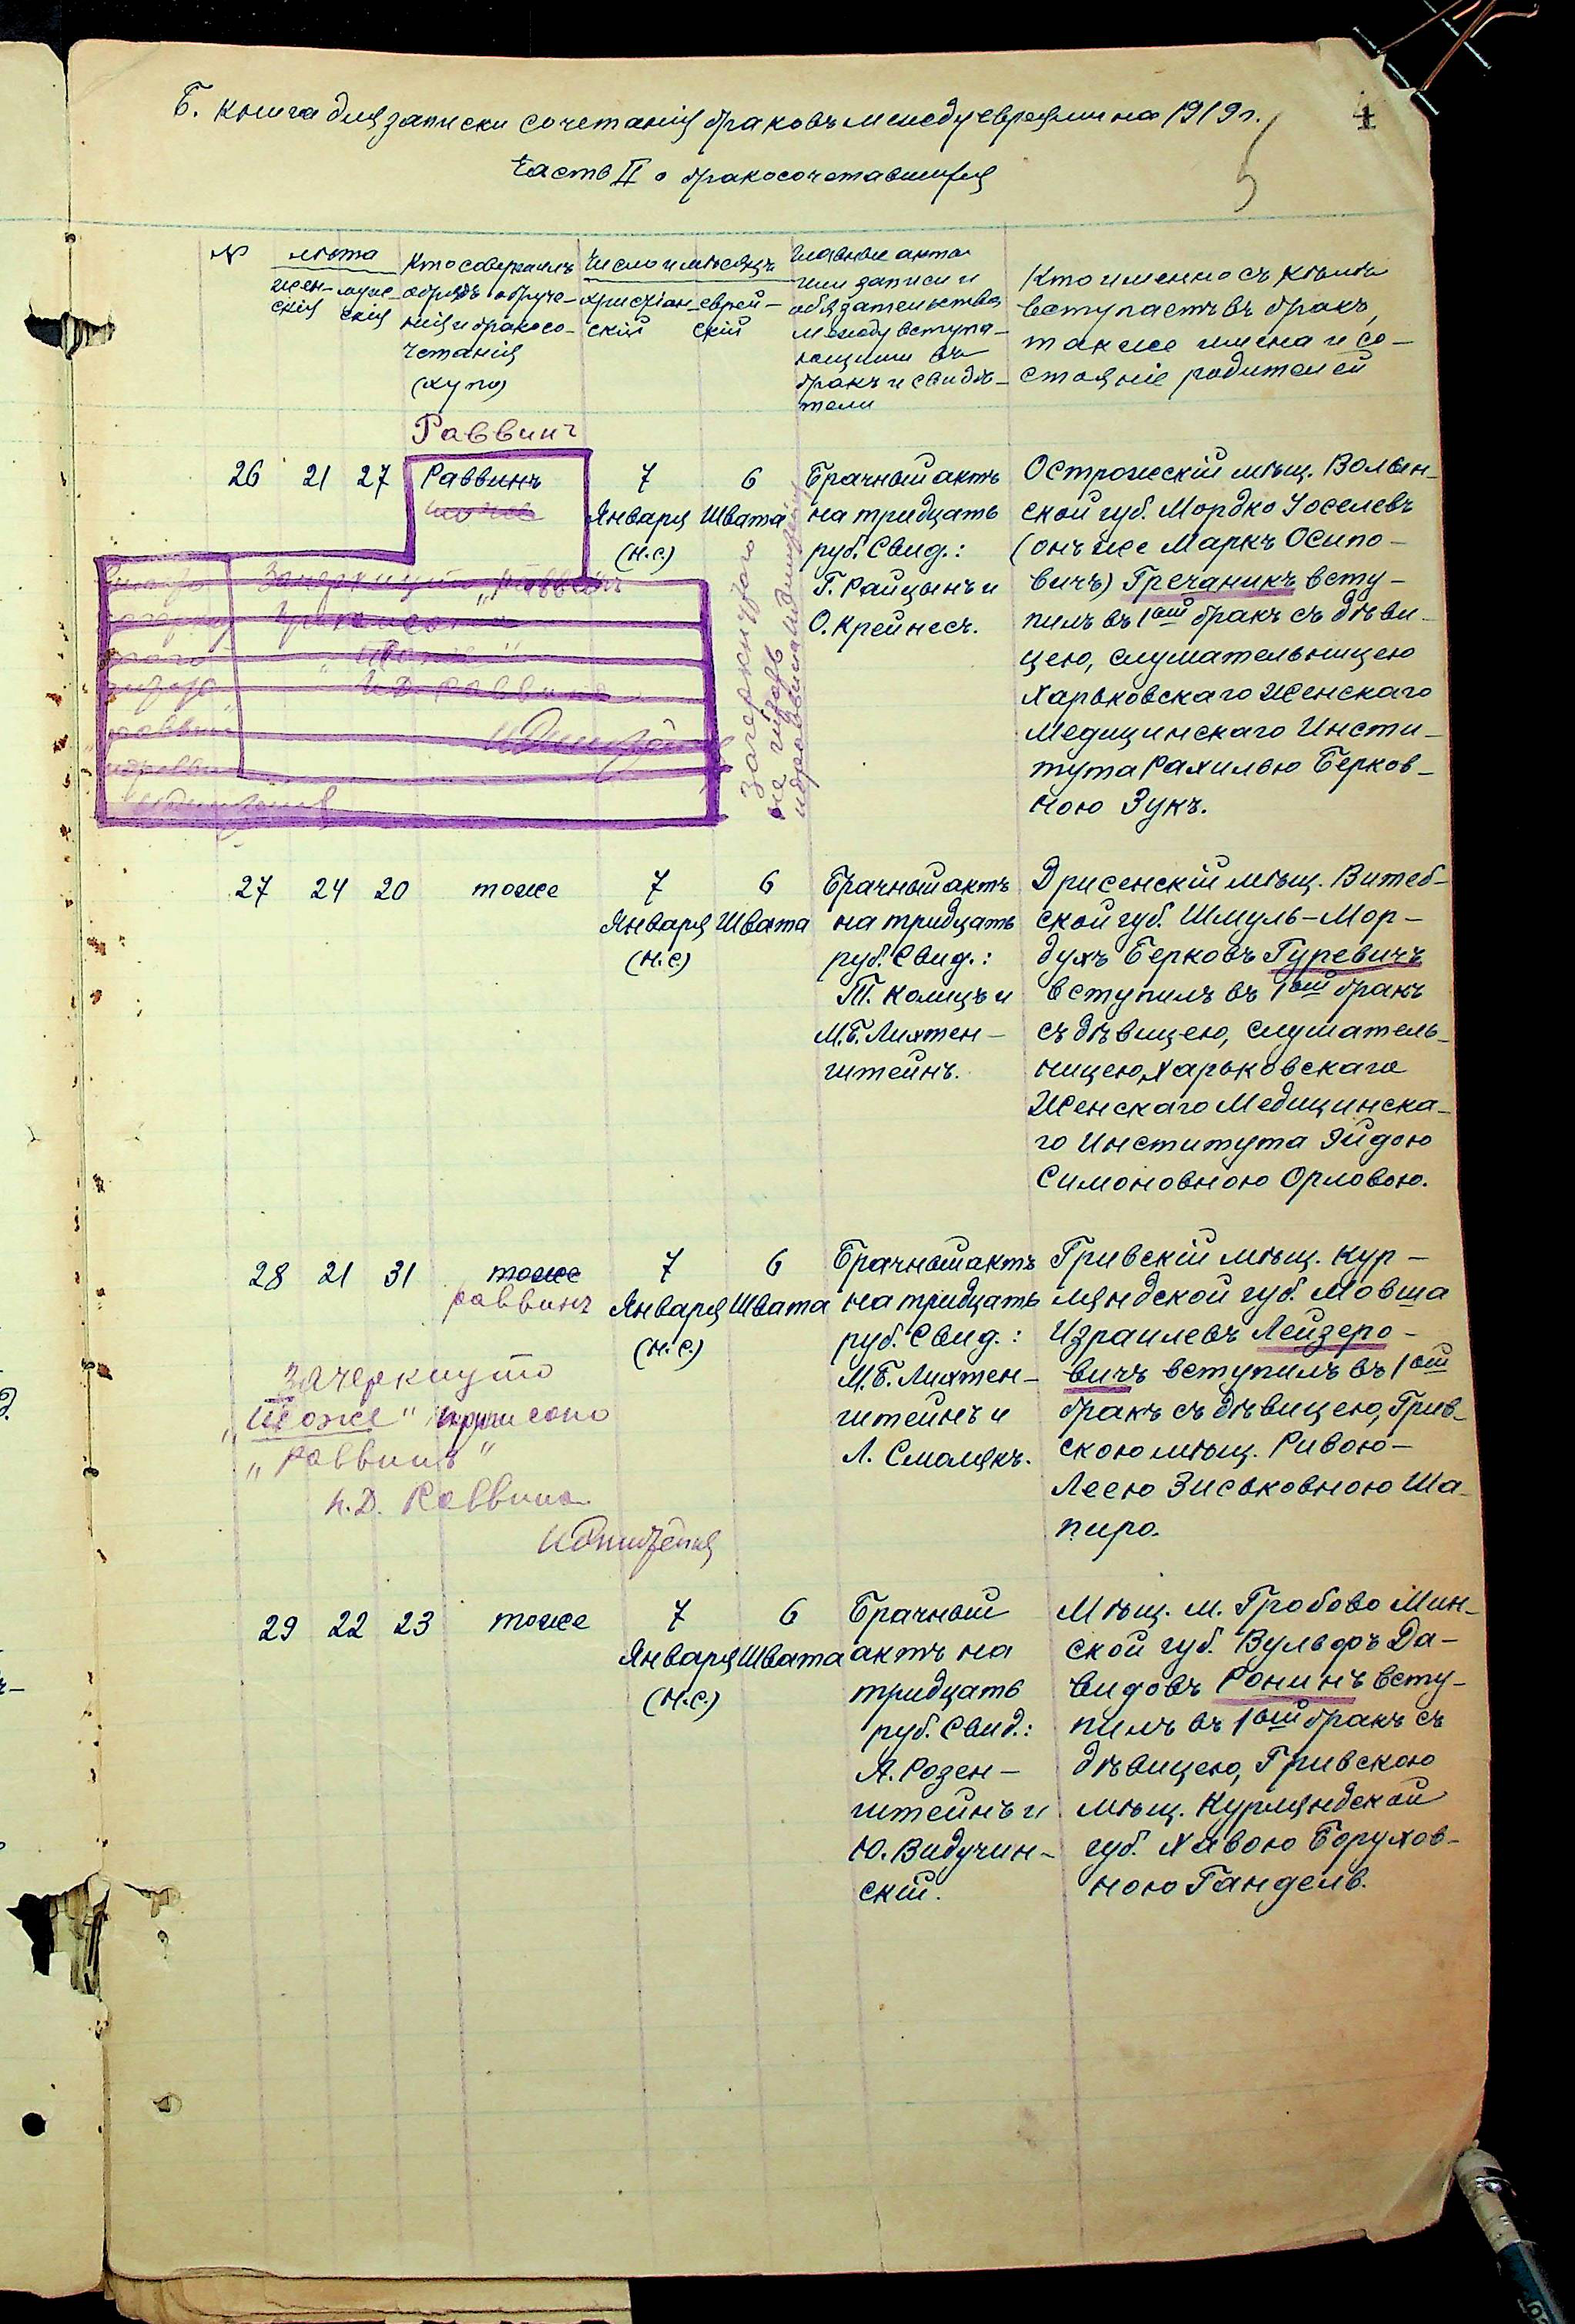 Б. Книга для записки сочетанія браковъ между евреями на 1919 г.
4
5
Часть II о бракосочетавшихся
№
лѣта
жен-
скія
муж-
скія
Кто совершалъ
обрядъ обруче-
нія и бракосо-
четанія
(хупа)
Число и мѣсяцъ
христіан-
скій
еврей-
скій
Главные акты
или записи и
обязательства
между вступа-
ющими въ
бракъ и свидѣ-
тели
Кто именно съ кѣмъ
вступаетъ въ бракъ,
также имена и со-
стояніе родителей
Раввинъ
26 21 27
Раввинъ
тоже
7
Января
(н.с.)
6
Швата
Брачный актъ
на тридцать
руб. Свид.:
Г. Райцынъ и
О. Крейнесъ.
Острожскій мѣщ. Волын-
ской губ. Мордко Іоселевъ
(онъ же Маркъ Осипо-
вичъ) Гречаникъ всту-
пилъ въ 1ый бракъ съ дѣви-
цею, слушательницею
Харьковскаго Женскаго
Медицинскаго Инсти-
тута Рахилью Берков-
ною Зукъ.
Зачеркнуто „Раввинъ
„тоже"
И.Д. Раввина
Зачеркнутого
не читать
27 24 20
тоже
7
Января
(н.с)
6
Швата
Брачный актъ
на тридцать
руб. Свид.:
Т. Колицъ и
М.Б. Лихтен-
штейнъ.
Дрисенскій мѣщ. Витеб-
ской губ. Шмуль-Мор-
духъ Берковъ Гуревичъ
вступилъ въ 1ый бракъ
съ дѣвицею, слушатель-
ницею Харьковскаго
Женскаго Медицинска-
го Института Эйдою
Симоновною Орловою.
28 21 31
тоже
раввинъ
7
Января
(н.с.)
6
Швата
Брачный актъ
на тридцать
руб. Свид.:
М.Б. Лихтен-
штейнъ и
Л. Смолякъ.
Гривскій мѣщ. Кур-
ляндской губ. Мовша
Израилевъ Лейзеро-
вичъ вступилъ въ 1ый
бракъ съ дѣвицею, Грив-
скою мѣщ. Ривою-
Леею Зиськовною Ша-
пиро.
Зачеркнуто
„тоже" приписано
„раввинъ"
И.Д. Раввина
29 22 23
тоже
7
Января
(н.с.)
6
Швата
Брачный
актъ на
тридцать
руб. Свид.:
А. Розен-
штейнъ и
Ю. Видучин-
скій.
Мѣщ. м. Гробово Мин-
ской губ. Вульфъ Да-
видовъ Ронинъ всту-
пилъ въ 1ый бракъ съ
дѣвицею, Гривскою
мѣщ. Курляндской
губ. Хавою Борухов-
ною Гандель.